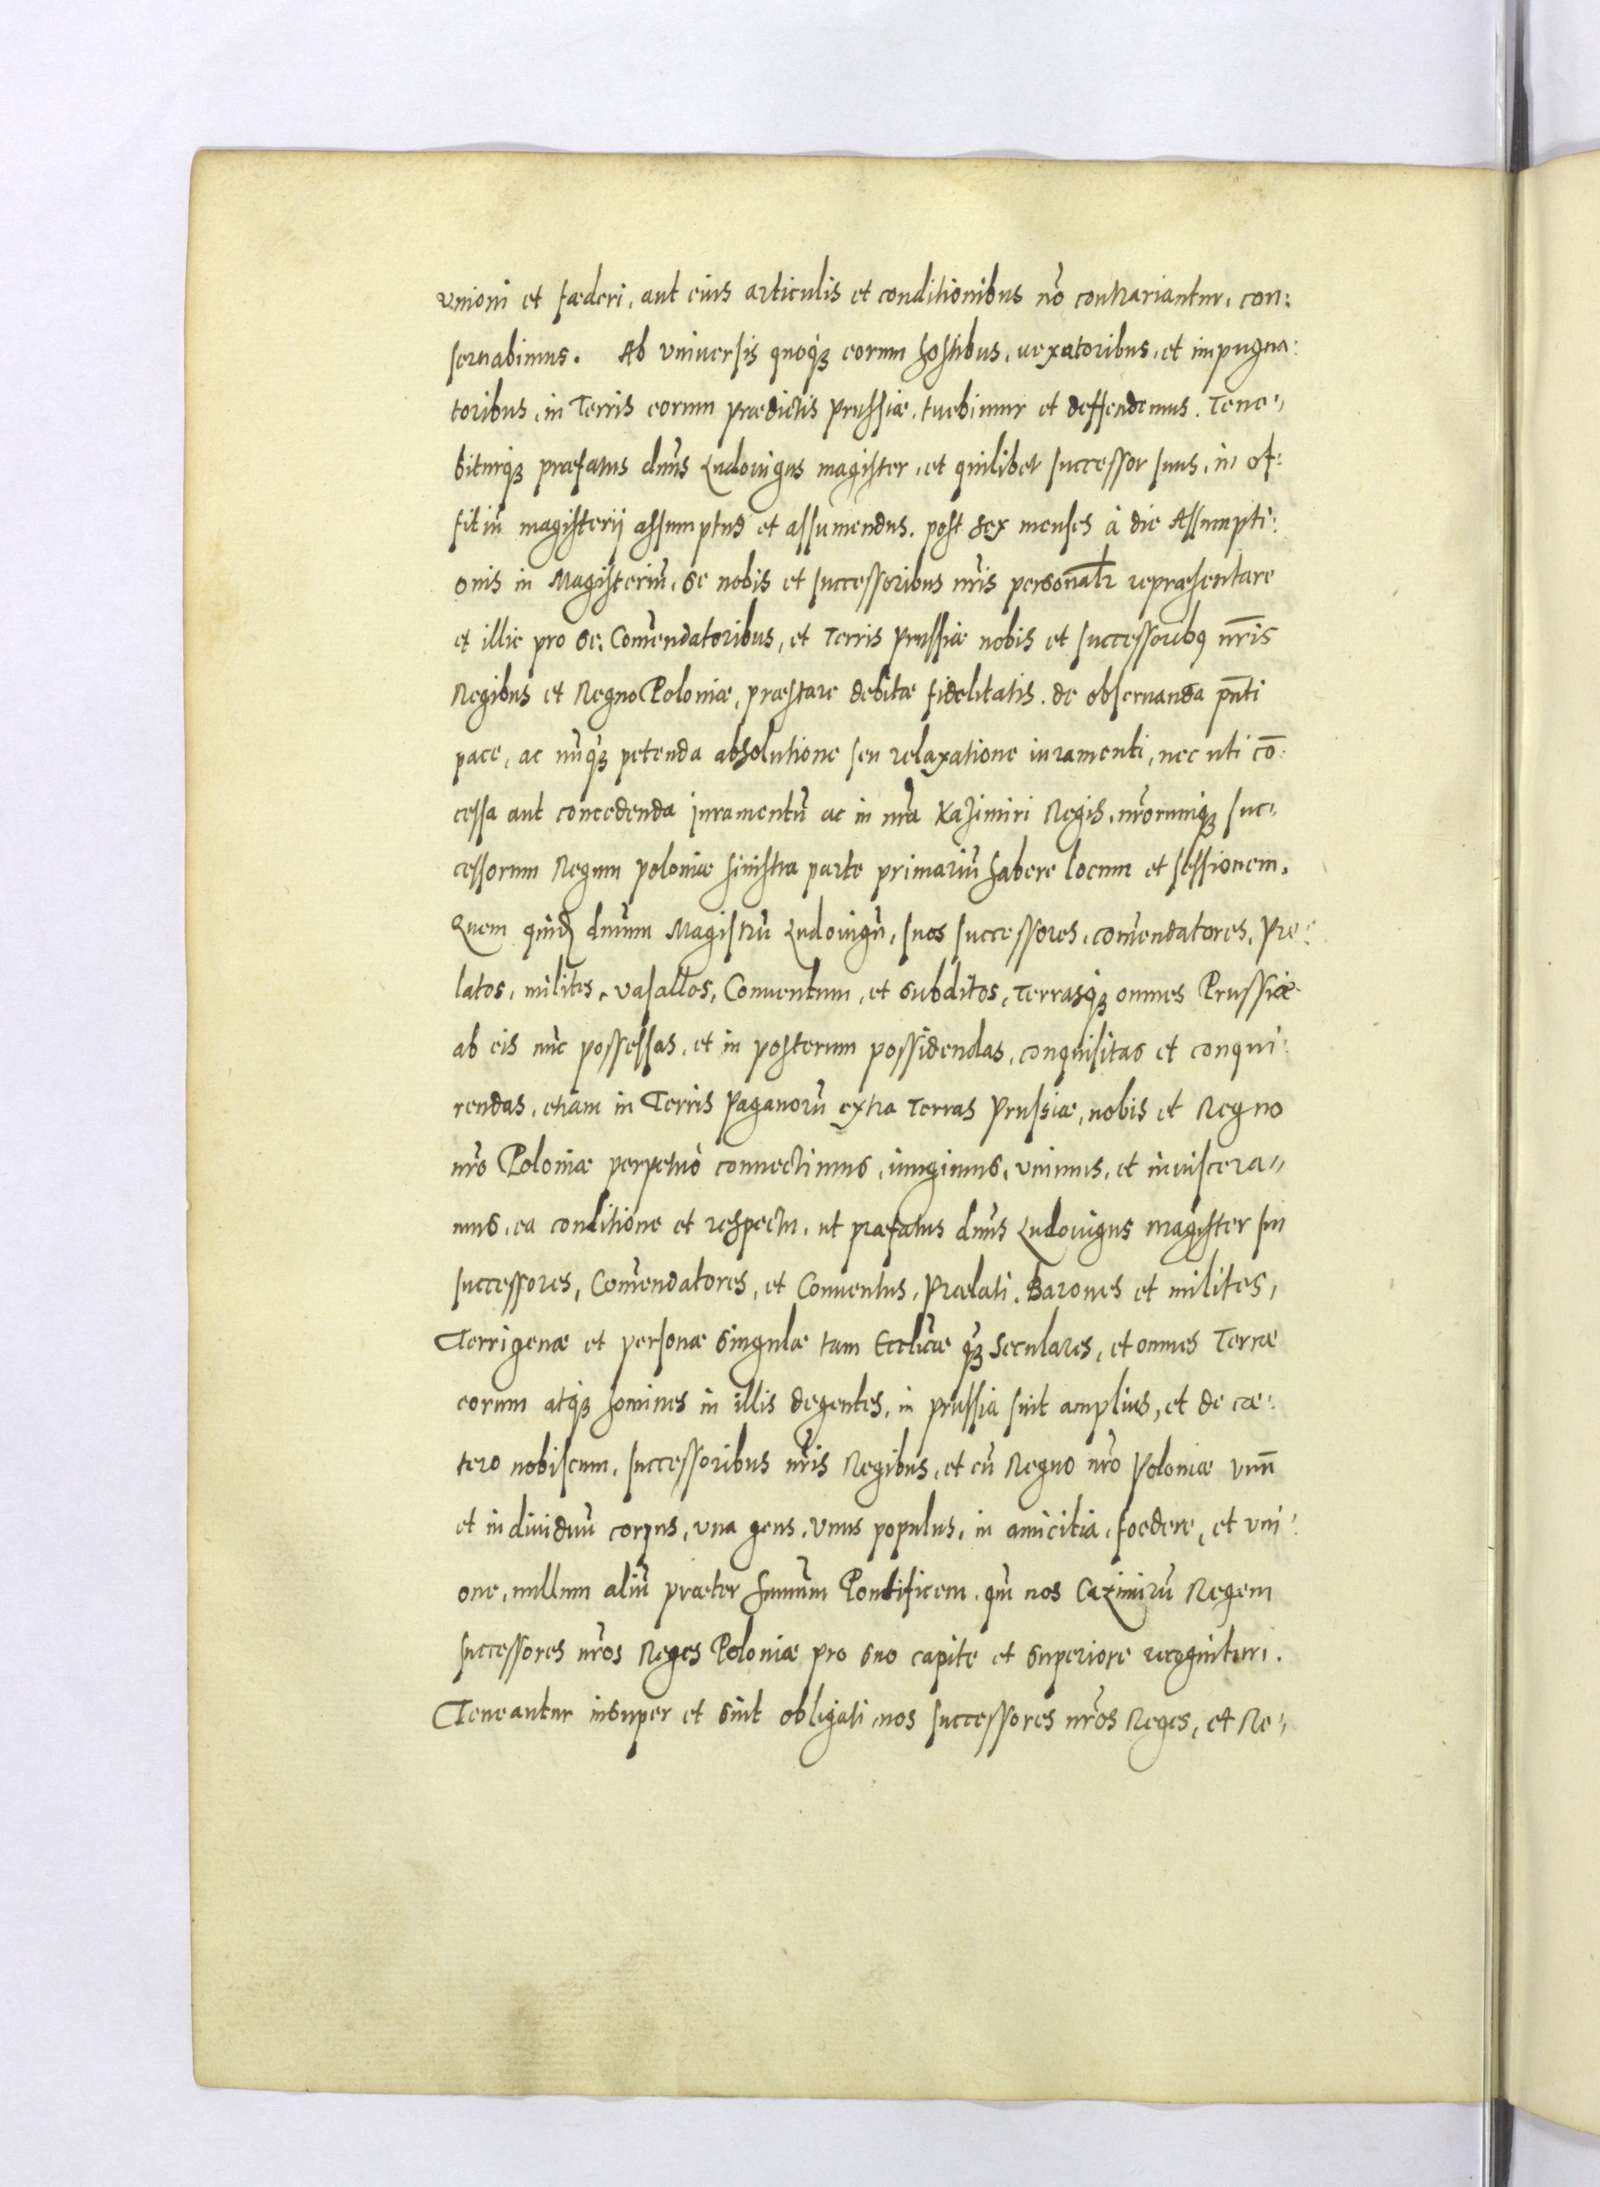 vnioni et fœderi, aut eius articulis et conditionibus nõ contrariantur, con:
seruabimus. Ab vniuersis quoqꝫ eorum hostibus, uexatoribus, et impugna:
toribus, in Terris eorum prædictis Prussiæ, tuebimur et deffendemus. Tene„
biturqꝫ præfatus dnũs Ludouigus magister, et quilibet successor suus, in of:
fitiũ magisterij assumptus et assumendus. post sex menses à die Assumpti:
onis in Magisteriũ, se nobis et successoribus nr̃is personalr̃ repræsentare
et illic pro se, Com̃endatoribus, et Terris Prussiæ nobis et successoribꝰ nr̃is
Regibus et Regno Poloniæ, præstare debitæ fidelitatis. de obseruanda pñti
pace, ac nũqꝫ petenda absolutione seu relaxatione iuramenti, nec uti cõ:
cessa aut concedenda juramentũ ac in nr̃a Kazimiri Regis, nr̃orumqꝫ suc„
cessorum Regum poloniæ sinistra parte primariũ habere locum et sessionem.
Quem quidẽ dnũm Magistrũ Ludouigũ, suos successores, com̃endatores, Præ:
latos, milites, vasallos, Conuentum, et subditos, Terrasqꝫ omnes Prussiæ
ab eis nũc possessas, et in posterum possidendas, conquisitas et conqui:
rendas, etiam in Terris Paganorũ extra Terras Prussiæ, nobis et Regno
nr̃o Poloniæ perpetuò connectimus, iungimus, vnimus, et inuiscera„
mus, ea conditione et respectu, ut præfatus dnũs Ludouigus magister sui
successores, Com̃endatores, et Conuentus, Prælati. Barones et milites,
Terrigenæ et personæ singulæ tam Eccl̃icæ qꝫ Seculares, et omnes Terræ
eorum atqꝫ homines in illis degentes, in prussia sint amplius, et de cæ:
tero nobiscum, successoribus nr̃is Regibus, et cũ Regno nr̃o Poloniæ vnũ
et indiuiduũ corpus, vna gens, vnus populus, in amicitia, foedere, et vni:
one, nullum aliũ præter summũm Pontificem. quã nos Cazimirũ Regem
successores nr̃os Reges Poloniæ pro suo capite et superiore recognituri.
Teneantur insuper et sint obligati nos successores nr̃os Reges, et Re„